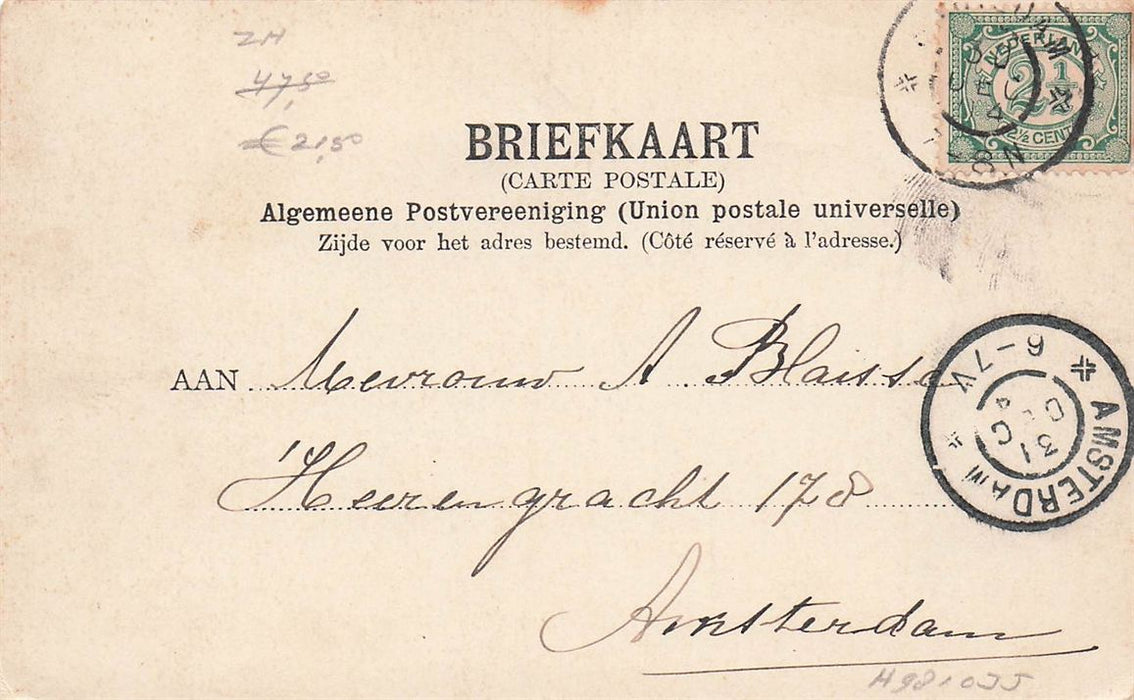 ZH
47,50
€ 21,50
NEDERLAND
2½
2½ CENT
BRIEFKAART
(CARTE POSTALE)
Algemeene Postvereeniging (Union postale universelle)
Zijde voor het adres bestemd. (Côté réservé à l'adresse.)
AAN Mevrouw A Blaisse
Heerengracht 178
Amsterdam
AMSTERDAM
6-7V
31